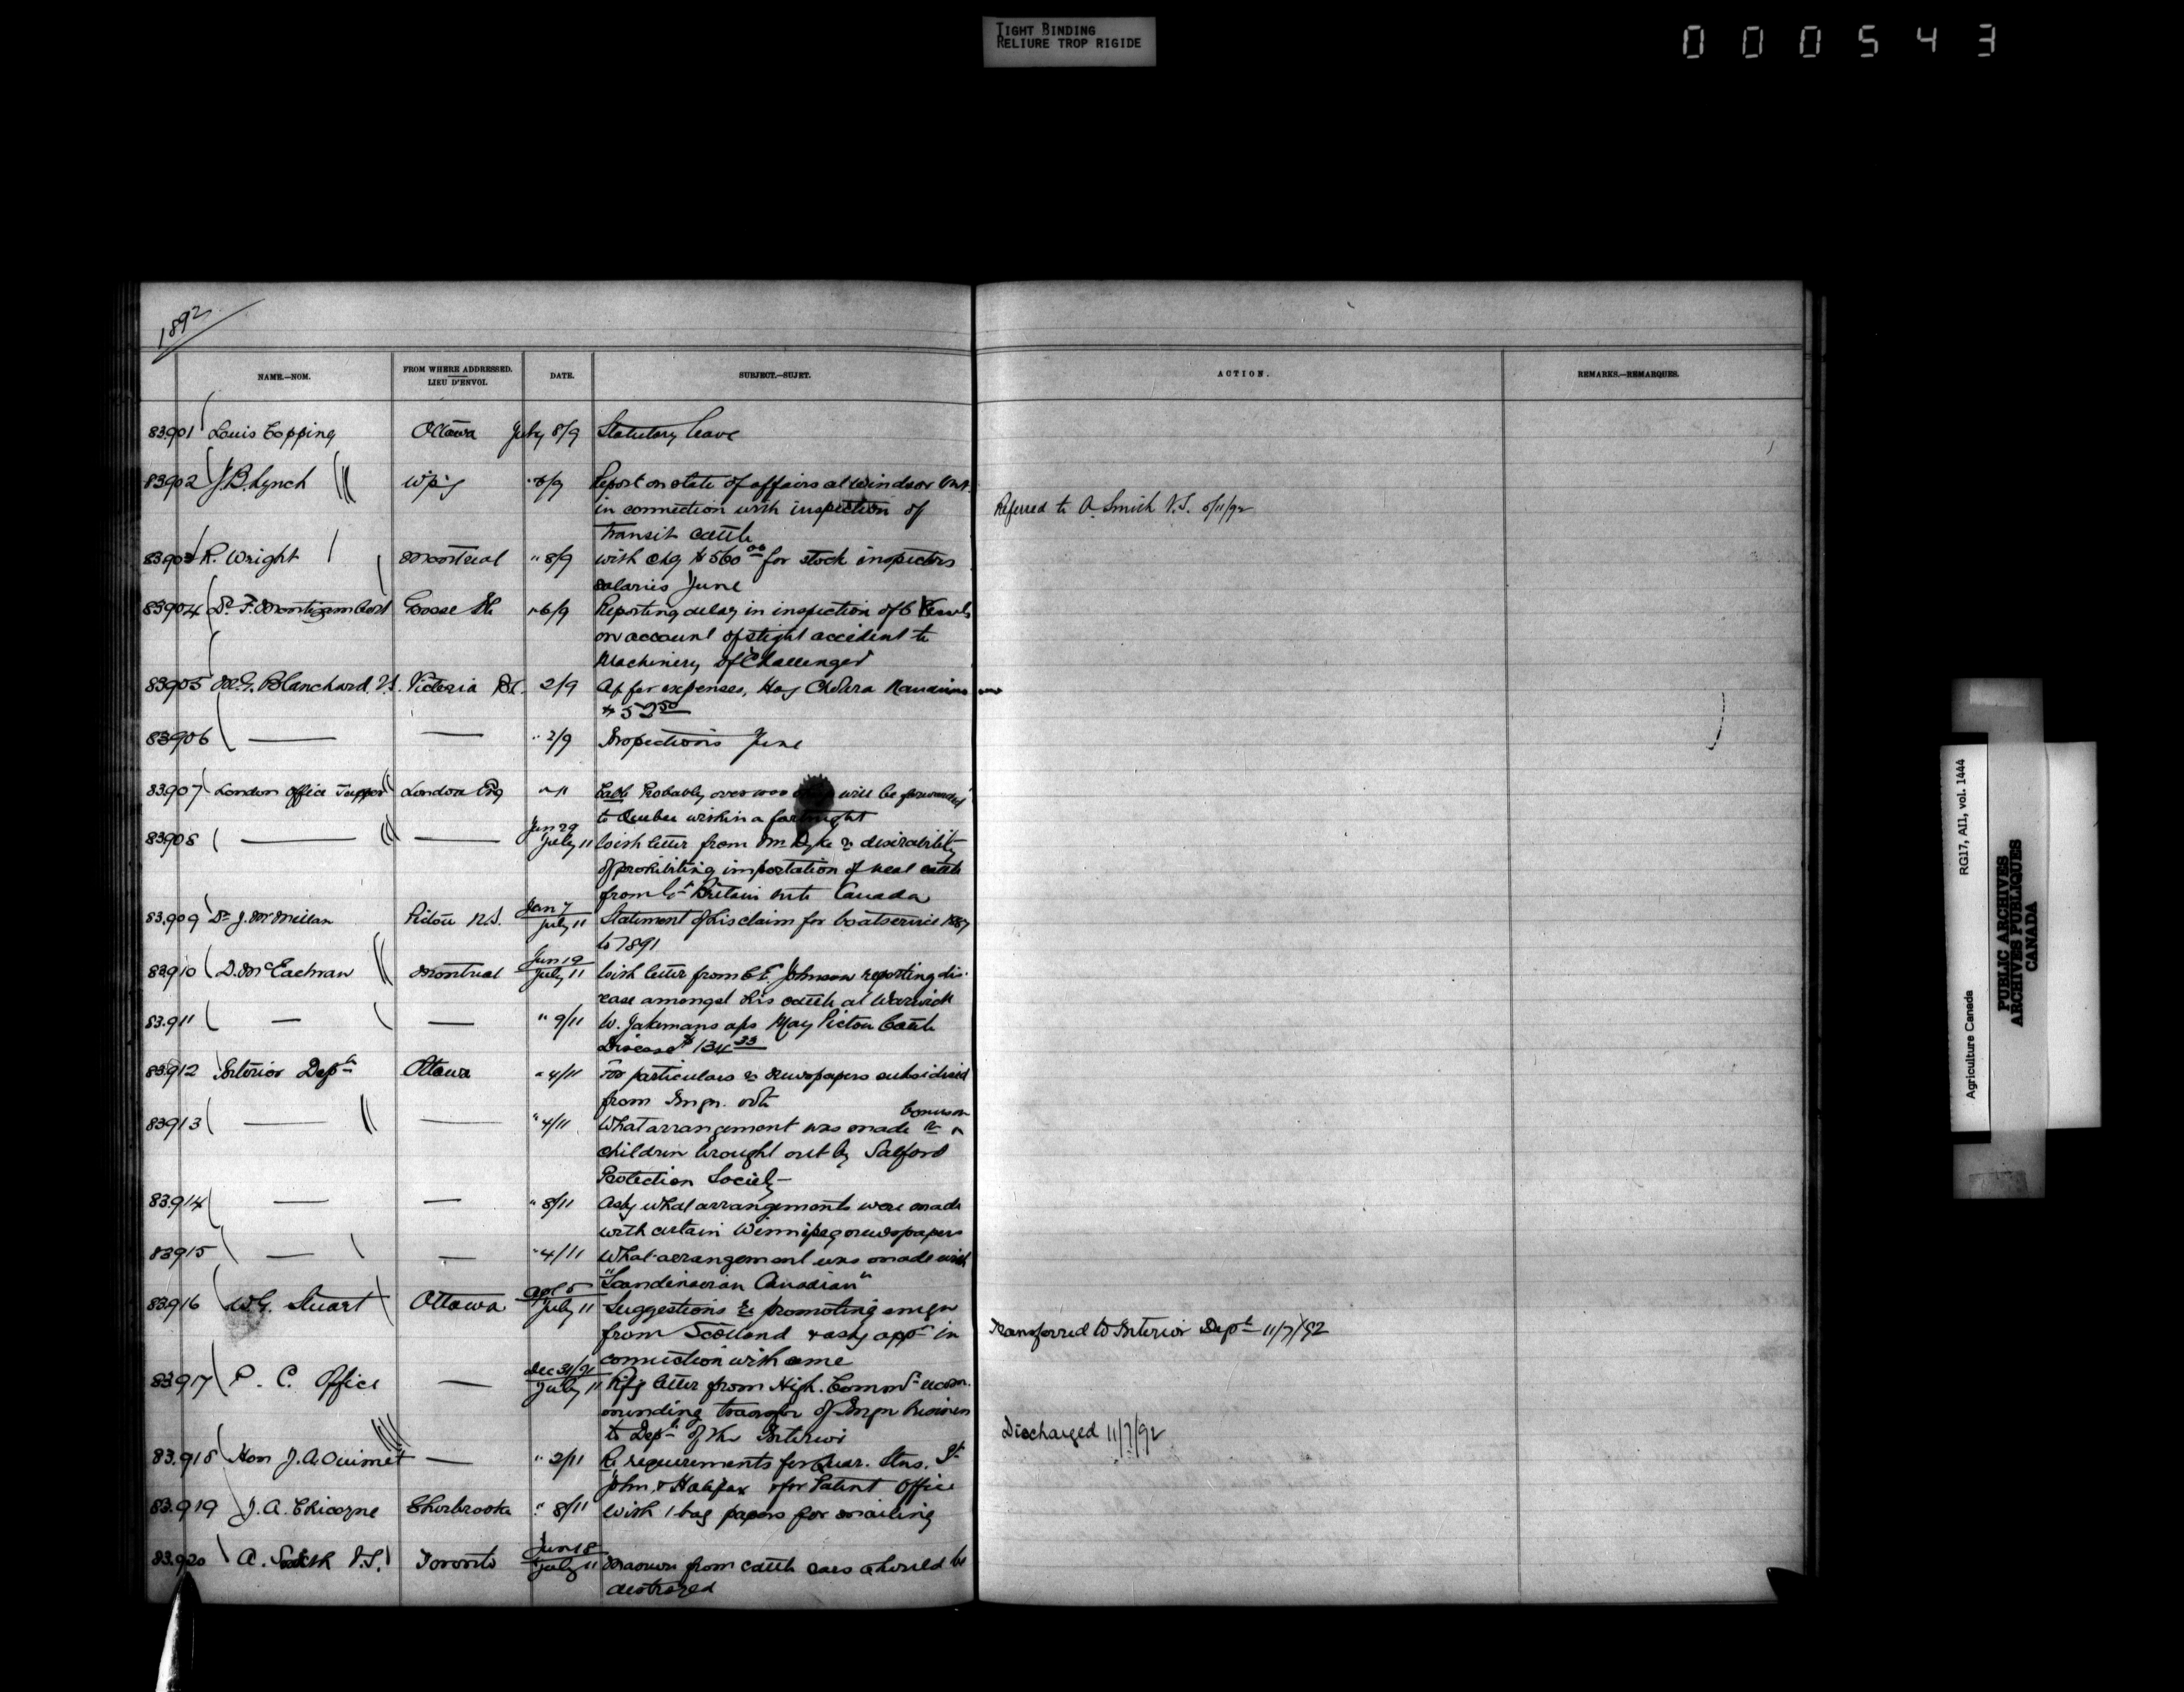 TIGHT BINDING
RELIURE TROP RIGIDE
000543
1892
NAME.—NOM.
FROM WHERE ADDRESSED.
LIEU D'ENVOI.
DATE.
SUBJECT.—SUJET.
ACTION.
REMARKS.—REMARQUES.
83901 Louis Topping Ottawa July 8/9 Statutory leave
83902 J.B. Lynch Wpg " 6/9 Report on state of affairs at Windsor Ont.
in connection with inspection of
transit cattle
Referred to A. Smith V.S.
83903 R. Wright Montreal " 8/9 With chq $560 00 for stock inspectors
salaries June
83904 Dr. F. Montizambert Grosse Ile " 6/9 Reporting delay in inspection of 6 Vessels
on account of slight accident to
Machinery of "Challenger"
83905 Blanchard V.S. Victoria B.C. 2/9 A/c for expenses, Hog Cholera Nanaimo
$ 50
83906 — — " 2/9 Inspections June
83907 London Office Tupper London Eng " 11 Cable Probably over will be forwarded
to Quebec within a fortnight
83908 — — Jun 29
July 11 With letter from Mr. Dyke re desirability
of prohibiting importation of neat cattle
from Gt. Britain into Canada
83.909 Dr. J. McMillan Pictou N.S. Jan 7
July 11 Statement of his claim for boat service 1887
to 1891
83910 D. McEachran Montreal Jun 19
July 11 With letter from C.E. Johnson reporting dis-
ease amongst his cattle at Warwick
83.911 — — " 9/11 W. Jakemans a/cs May Pictou Cattle
Disease $134 33
83.912 Interior Dept. Ottawa " 4/11 For particulars re newspapers subsidized
from Imgn. vote
83913 — — " 4/11 What arrangement was made re bonus on
children brought out by Salford
Protection Society
83.914 — — " 8/11 Asks what arrangements were made
with certain Winnipeg newspapers
83915 — — " 4/11 What arrangement was made with
"Scandinavian Canadian"
83916 W.G. Stuart Ottawa Apl 5
July 11 Suggestions re promoting emgn
from Scotland & asks appt. in
connection with same
Transferred to Interior Dept. 11/7/92
83917 P. C. Office — Dec 31/91
July 11 letter from High. Commr. recom-
mending transfer of Imgn Business
to Dept. of the Interior
Discharged 11/7/92
83.918 Hon J.A. Ouimet — " 2/11 Re requirements for Quar. Stns. St.
John & Halifax & for Patent Office
83.919 J.A. Chicoyne Sherbrooke " 8/11 With 1 bag papers for mailing
83.920 A. Smith V.S. Toronto Jun 18
July 11 Manure from cattle cars should be
destroyed
Agriculture Canada RG17, AI1, vol. 1444
PUBLIC ARCHIVES
ARCHIVES PUBLIQUES
CANADA